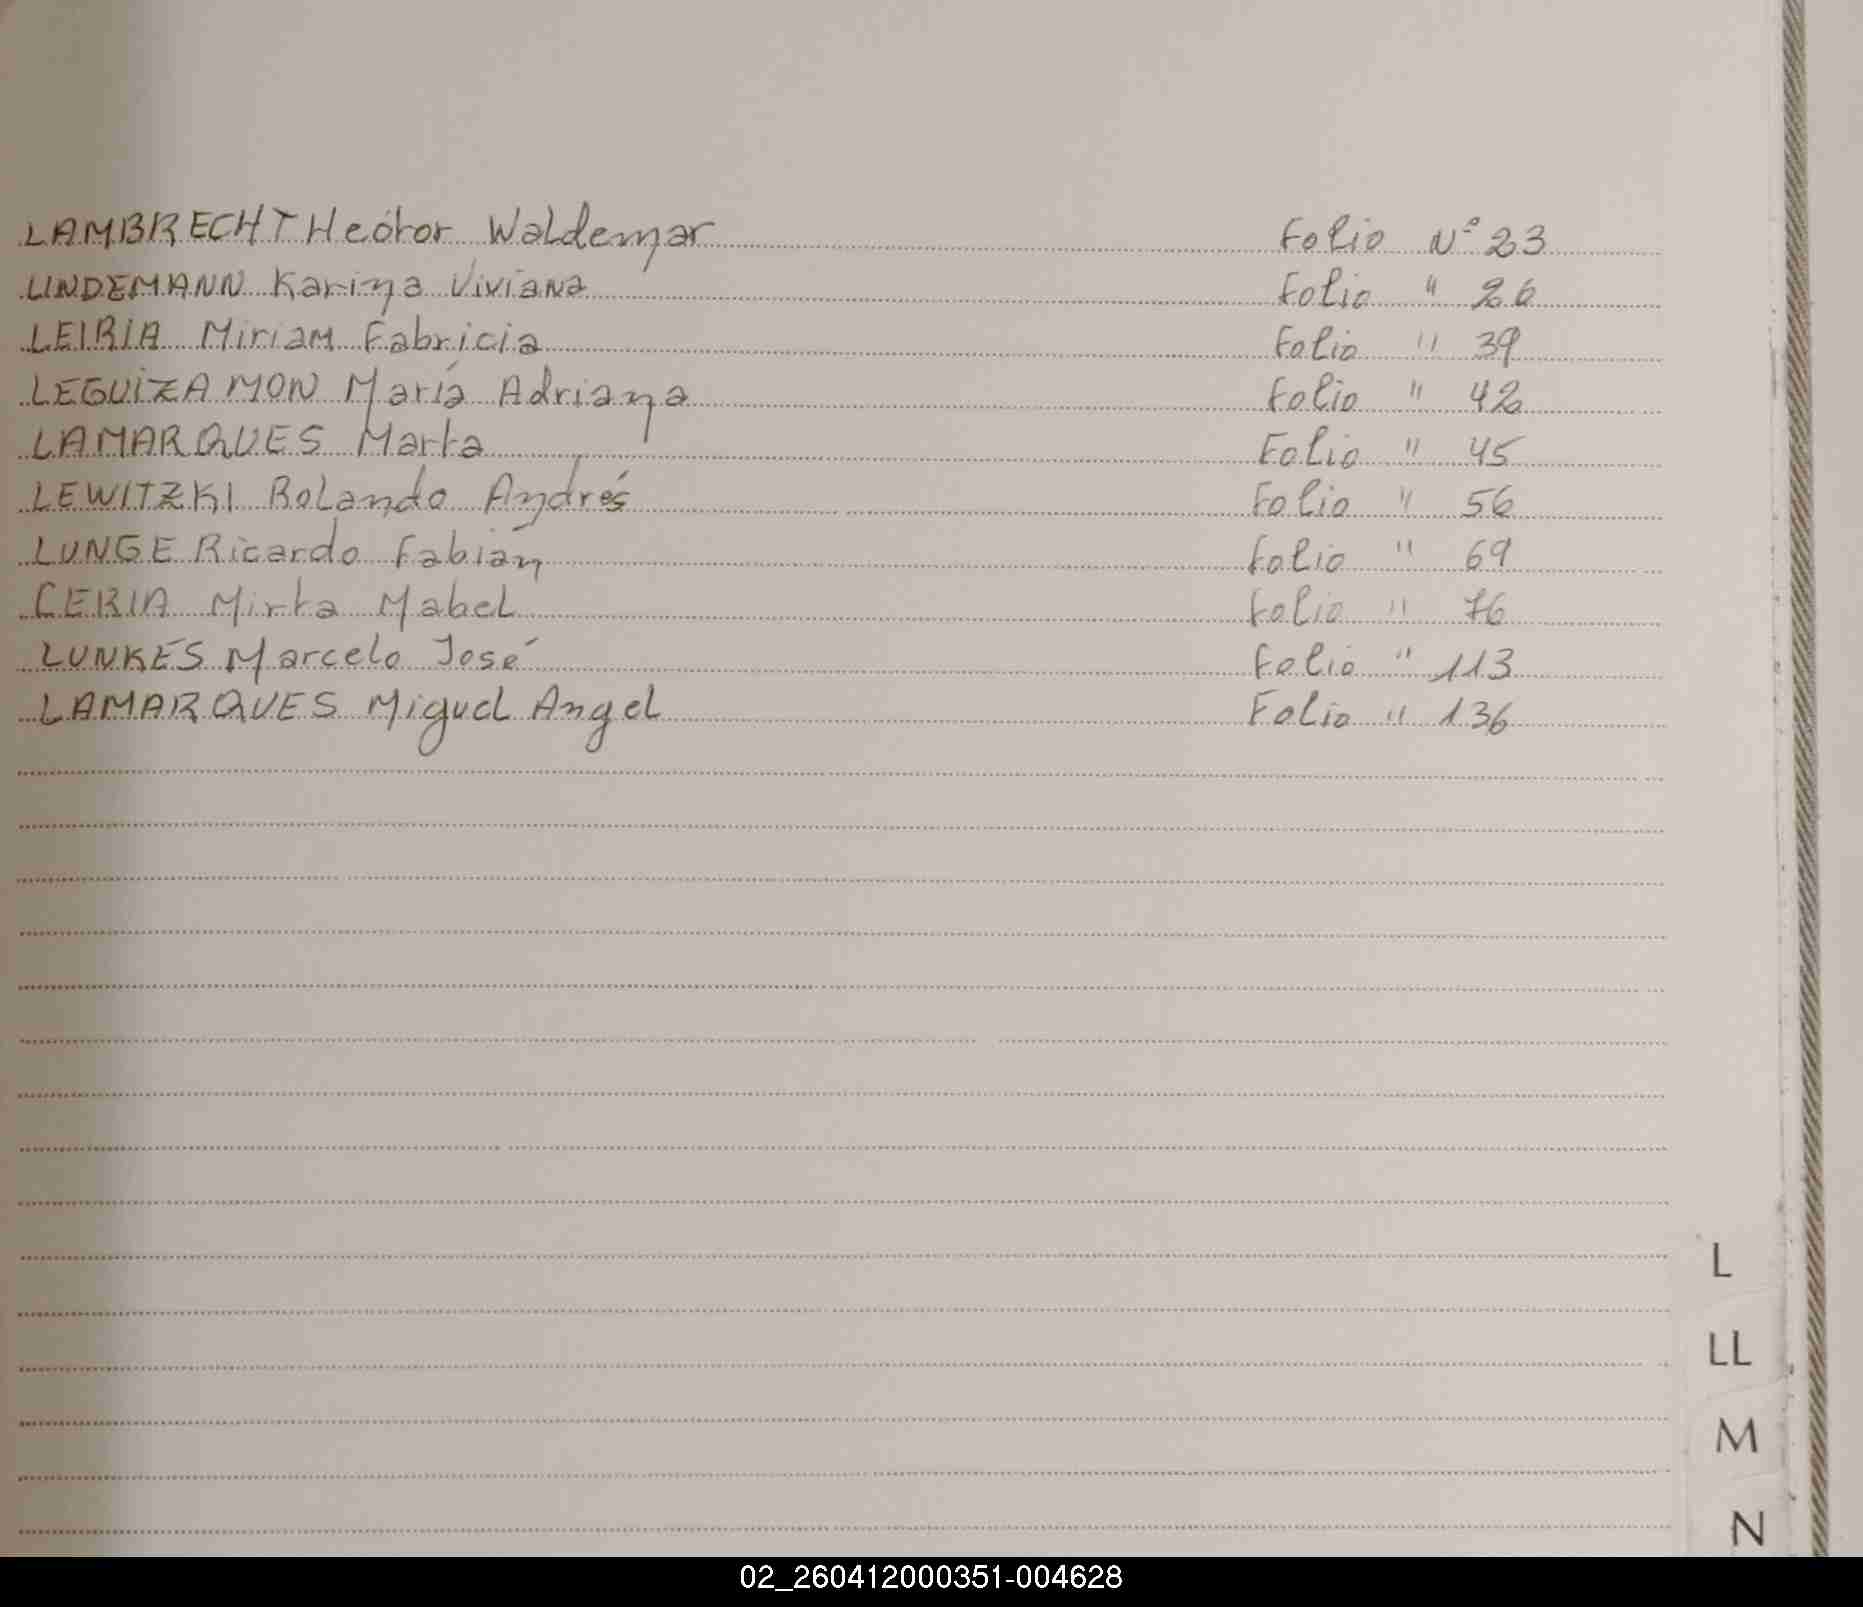 LAMBRECHT Hector Waldemar Folio Nº 23
LINDEMANN Karina Viviana Folio " 26
LEIRIA Miriam Fabricia Folio " 39
LEGUIZAMON María Adriana Folio " 42
LAMARQUES Marta Folio " 45
LEWITZKI Rolando Andrés Folio " 56
LUNGE Ricardo Fabián Folio " 69
LERIA Mirta Mabel Folio " 76
LUNKES Marcelo José Folio " 113
LAMARQUES Miguel Angel Folio " 136
L
LL
M
N
02_260412000351-004628